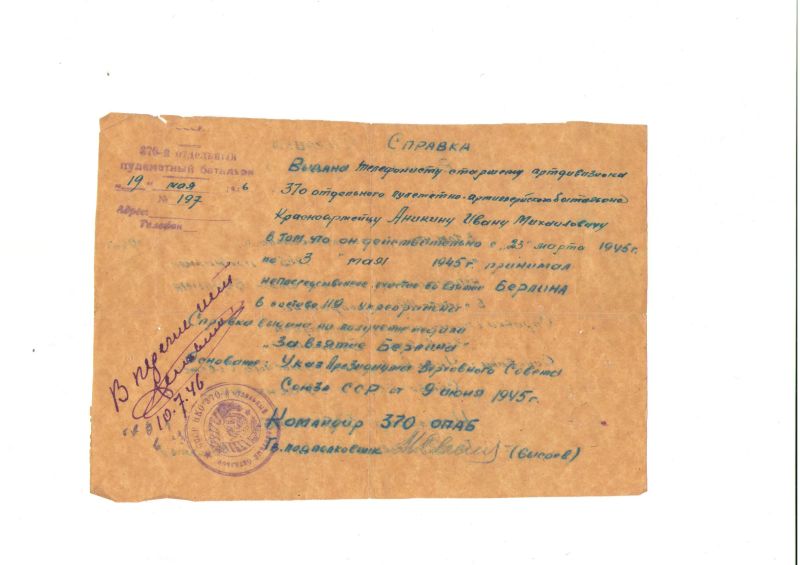 СССР
370-й отдельный
пулеметный батальон
"19" мая 1946
№ 197
Адрес
Телефон
Справка
Выдана телефонисту старшему артдивизиона
370 отдельного пулеметно-артиллерийского батальона
Красноармейцу Аникину Ивану Михайловичу
в том, что он действительно с "23" марта 1945г.
по "3" мая 1945г. принимал
непосредственное участие во взятии Берлина
в составе 119 укрепрайона
Справка выдана на получение медали
"За взятие Берлина"
Основание: Указ Президиума Верховного Совета
Союза ССР от 9 июня 1945г.
Командир 370 ОПАБ
Гв. подполковник
В перечислении
10.7.46